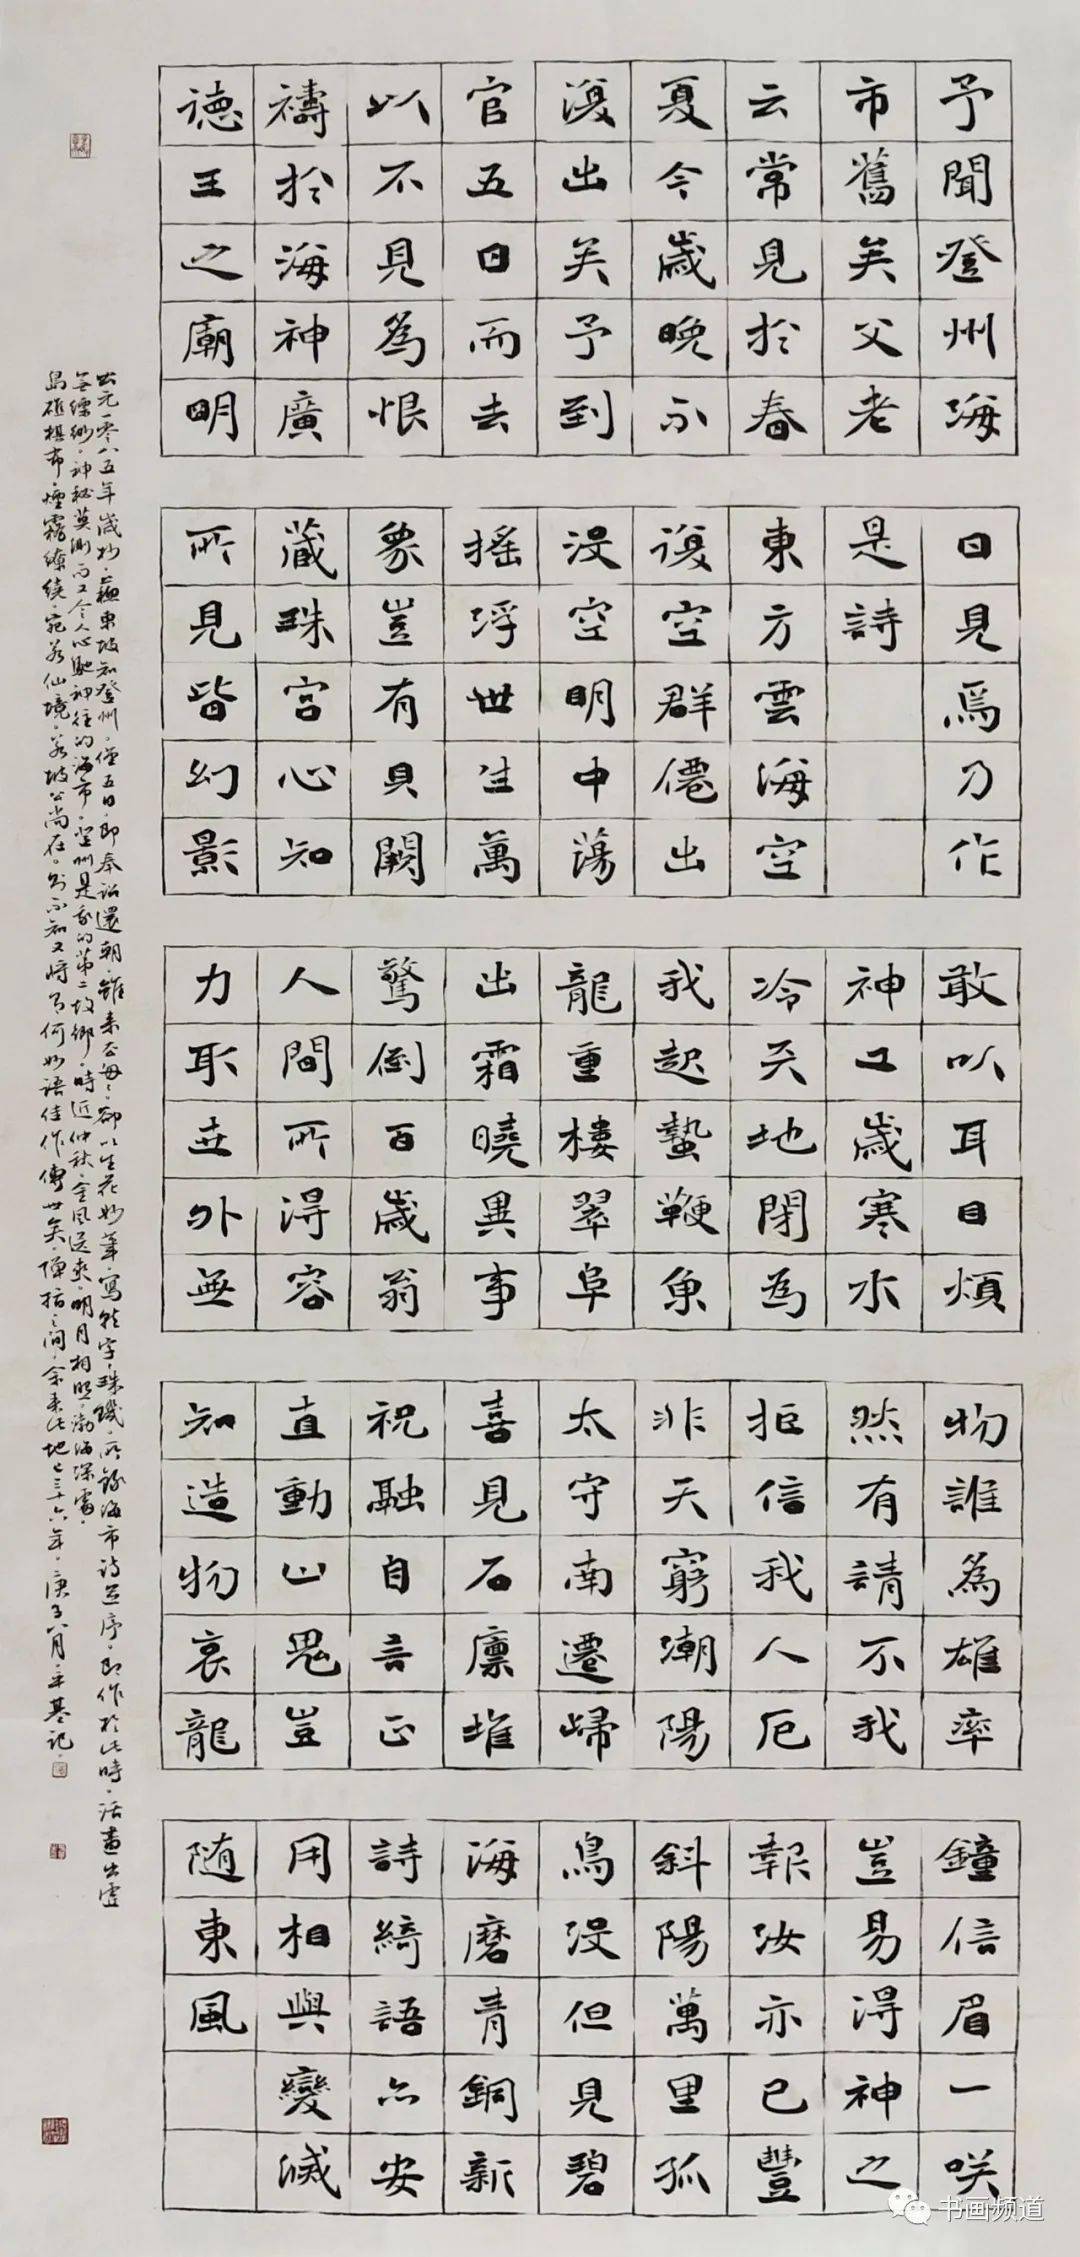 予聞登州海
市舊矣父老
云常見於春
夏今歲晚不
復出矣予到
官五日而去
以不見為恨
禱於海神廣
德王之廟明
日見焉乃作
是詩
東方雲海空
復空群僊出
沒空明中蕩
搖浮世生萬
象豈有貝闕
藏珠宮心知
所見皆幻影
敢以耳目煩
神工歲寒水
冷天地閉為
我起蟄鞭魚
龍重樓翠阜
出霜曉異事
驚倒百歲翁
人間所得容
力取世外無
物誰為雄率
然有請不我
拒信我人厄
非天窮潮陽
太守南遷歸
喜見石廩堆
祝融自言正
直動山鬼豈
知造物哀龍
鐘信眉一咲
豈易得神之
報汝亦已豐
斜陽萬里孤
鳥沒但見碧
海磨青銅新
詩綺語亦安
用相與變滅
隨東風
公元一零八五年歲杪。蘇東坡知登州。僅五日。即奉詔還朝。雖來去匆匆。卻以生花妙筆。寫就字字珠璣。所錄海市詩並序。即作於此時。活畫出虛
無縹緲。神秘莫測而又令人心馳神往的海市。登州是我的第二故鄉。時近仲秋。金風送爽。明月相照。渤海深處。
島礁棋布。煙霧繚繞。宛若仙境。若坡公尚在。則不知又將有何妙語佳作傳世矣。彈指之間。余來此地已三十六年。庚子八月 基記
书画频道